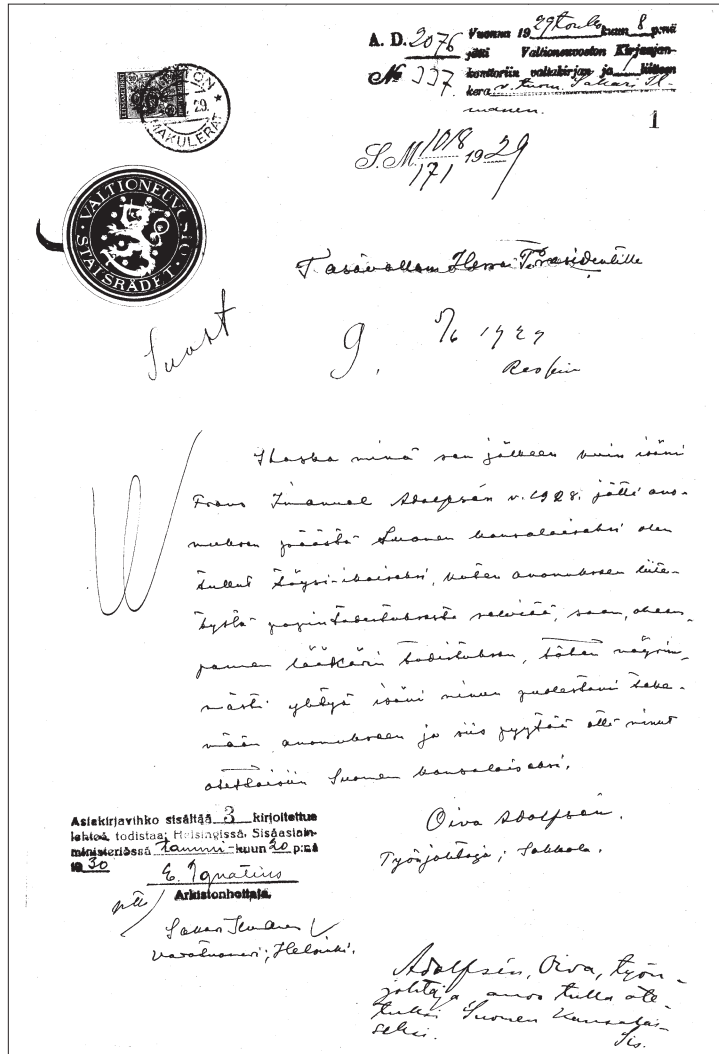 A. D. 2076 Vuonna 1929 Toukokuun 8 p:nä
jätti Valtioneuvoston Kirjaajan-
No 337 konttoriin valtakirjan ja liitteen
kera v. tuom. Sakari Il-
manen.
1
MAKULERAT
29
S.M. 1018/171 1929
VALTIONEUVOSTO
STATSRÅDET
Tasavallan Herra Presidentille
Suost
9. 5/6 1929
Koska minä sen jälkeen kuin isäni
Frans Imanuel Adolfsén v. 1928 jätti ano-
muksen päästä Suomen kansalaiseksi olen
tullut täysi-ikäiseksi, kuten anomukseen liite-
tystä papintodistuksesta selviää, saan, oheen-
pannen lääkärin todistuksen, täten nöyrim-
mästi yhtyä isäni minun puolestani teke-
mään anomukseen ja siis pyytää että minut
otettaisiin Suomen kansalaiseksi.
Oiva Adolfsén.
Työnjohtaja; Sakkola.
Asiakirjavihko sisältää 3 kirjoitettua
lehteä, todistaa; Helsingissä, Sisäasiain-
ministeriössä tammi-kuun 20 p:nä
1930
E. Ignatius
Arkistonhoitaja.
Sakari Ilmanen
varatuomari; Helsinki.
Adolfsén, Oiva, työn-
johtaja, anoo tulla ote-
tuksi Suomen Kansalai-
seksi.
Sis.